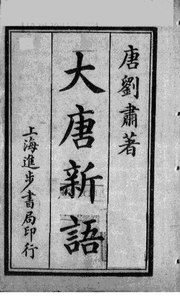 唐劉肅著
大唐新語
上海進步書局印行